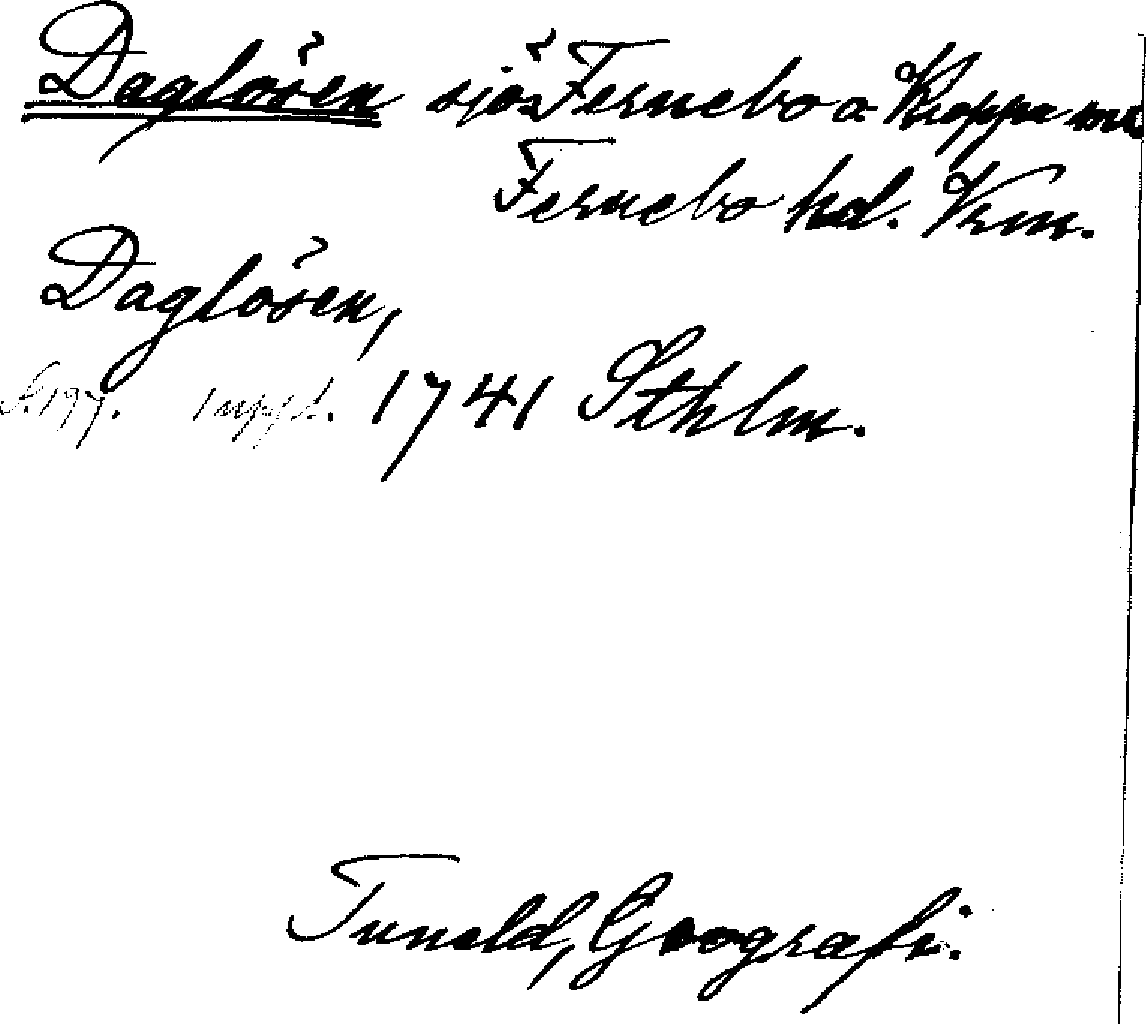 Daglösen sjö i Fernebo o Kroppa snr
Fernebo hd. Vrm.
Daglösen,
S. 197. 1 uppl. 1741 Sthlm.
Tuneld, Geografi.